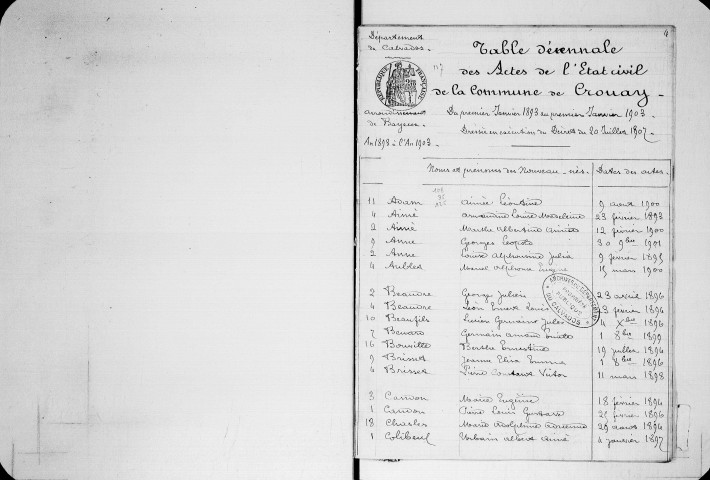 4
Département
de Calvados
RÉPUBLIQUE FRANÇAISE
arrondissement
de Bayeux
An 1893 à l'An 1903
Table décennale
des Actes de l'Etat civil
de la Commune de Crouay
Du premier Janvier 1893 au premier Janvier 1903
Dressée en exécution du Décret du 20 Juillet 1807
Noms et prénoms des Nouveau-nés Dates des actes
11 Adam Aimée Léontine 9 août 1900
4 Aimé Armandine Louise Madeleine 23 février 1893
2 Aimé Marthe Albertine 12 février 1900
9 Anne Georges 30 9bre 1901
2 Anne Louise Alphonsine Julia 9 février 1895
4 Marcel Alphonse Eugène 15 mars 1900
2 Beaudre George Julien 23 avril 1896
4 Beaudre Léon Ernest Louis 23 février 1896
10 Beaufils Lucien Germain Jules 4 Xbre 1896
7 Benard Germain 1 8bre 1899
16 Bouville Berthe Ernestine 19 juillet 1894
9 Brisset Jeanne Elisa 1 8bre 1896
4 Brisset Victor 11 mars 1898
3 Camon Marie Eugénie 18 février 1894
1 Camon Louis Gustave février 1896
18 Charles Marie 29 août 1894
1 Colibeuf Urbain Albert Aimé 4 janvier 1897